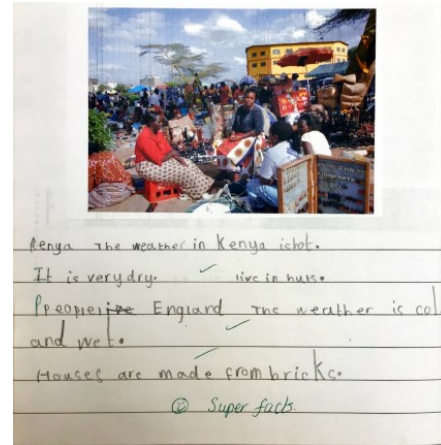 Kenya The weather in Kenya is hot.
It is very dry. live in huts.
Ppeople live England The weather is col
and wet.
Houses are made from bricks.
Super facts.